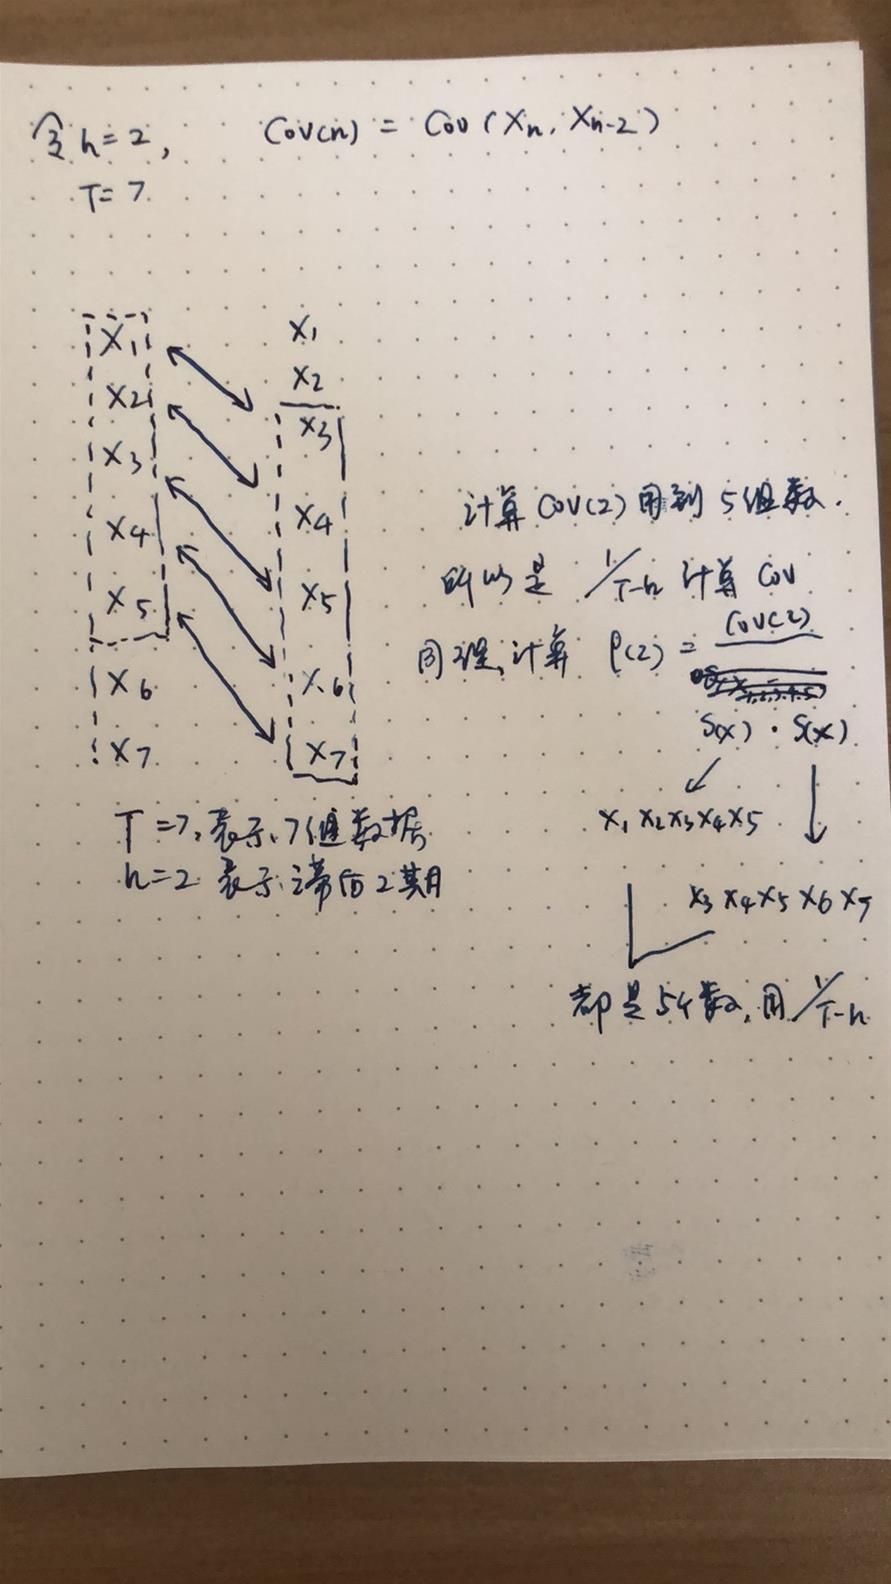 令 h=2, Cov(h) = Cov(Xn, Xn-2)
T=7
X1 X1
X2 X2
X3 X3
X4 X4
X5 X5
X6 X6
X7 X7
计算 Cov(2) 用到 5组数.
所以是 1/T-h 计算 Cov
同理, 计算 ρ(2) = Cov(2)
S(X) · S(X)
X1 X2 X3 X4 X5
X3 X4 X5 X6 X7
都是5个数, 用 1/T-h
T=7, 表示 7组数据
h=2 表示滞后2期